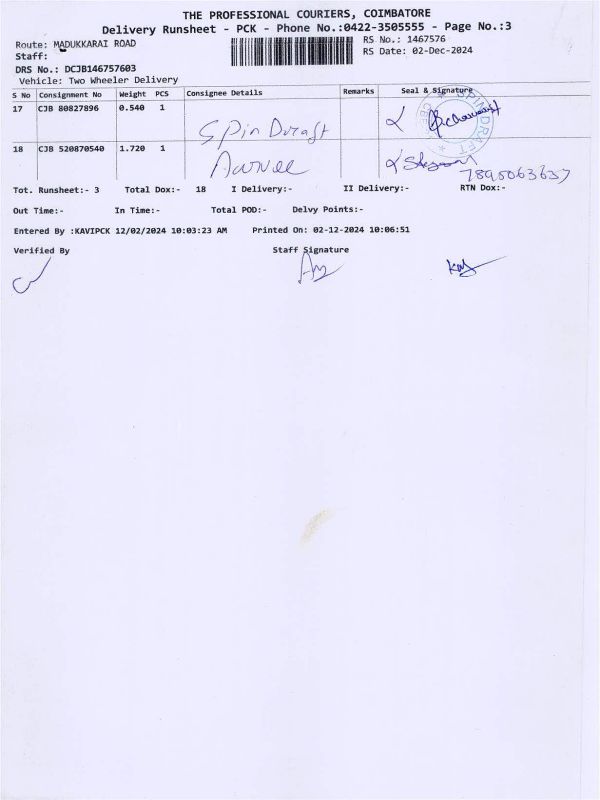 THE PROFESSIONAL COURIERS, COIMBATORE
Delivery Runsheet - PCK - Phone No.:0422-3505555 - Page No.:3
Route: MADUKKARAI ROAD
RS No.: 1467576
Staff:
RS Date: 02-Dec-2024
DRS No.: DCJB146757603
Vehicle: Two Wheeler Delivery
S No Consignment No Weight PCS Consignee Details Remarks Seal & Signature
17 CJB 80827896 0.540 1
Spin Draft
SPINDRAFT
18 CJB 520870540 1.720 1
Aarvee
Tot. Runsheet:- 3 Total Dox:- 18 I Delivery:- II Delivery:- RTN Dox:-
Out Time:- In Time:- Total POD:- Delvy Points:-
Entered By :KAVIPCK 12/02/2024 10:03:23 AM Printed On: 02-12-2024 10:06:51
Verified By Staff Signature